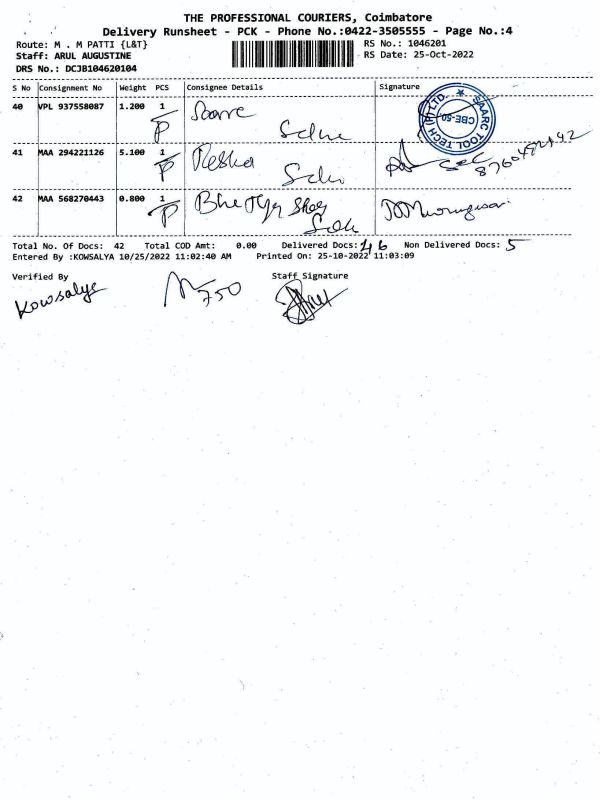 THE PROFESSIONAL COURIERS, Coimbatore
Delivery Runsheet - PCK - Phone No.:0422-3505555 - Page No.:4
Route: M . M PATTI {L&T}
RS No.: 1046201
Staff: ARUL AUGUSTINE
RS Date: 25-Oct-2022
DRS No.: DCJB104620104
S No Consignment No Weight PCS Consignee Details Signature
40 VPL 937558087 1.200 1
P
SAARC TOOL TECH (P) LTD.
CBE-50
41 MAA 294221126 5.100 1
P
42 MAA 568270443 0.800 1
P
Total No. Of Docs: 42 Total COD Amt: 0.00 Delivered Docs: 46 Non Delivered Docs: 5
Entered By :KOWSALYA 10/25/2022 11:02:40 AM Printed On: 25-10-2022 11:03:09
Verified By Staff Signature
Kowsalya
750